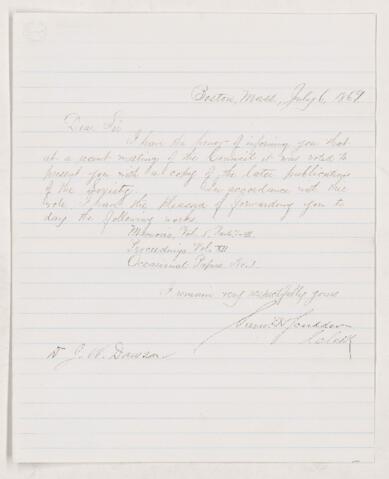 Boston, Mass., July 6, 1869.
Dear Sir
I have the honor of informing you that
at a recent meeting of the Council it was voted to
present you with a copy of the later publications
of the Society. In accordance with this
vote I have the pleasure of forwarding you to
day the following works
Memoirs, Vol. I,
Proceedings Vol. XII
Occasional Papers No. I
I remain very respectfully yours
Scudder
Dr J. W. Dawson